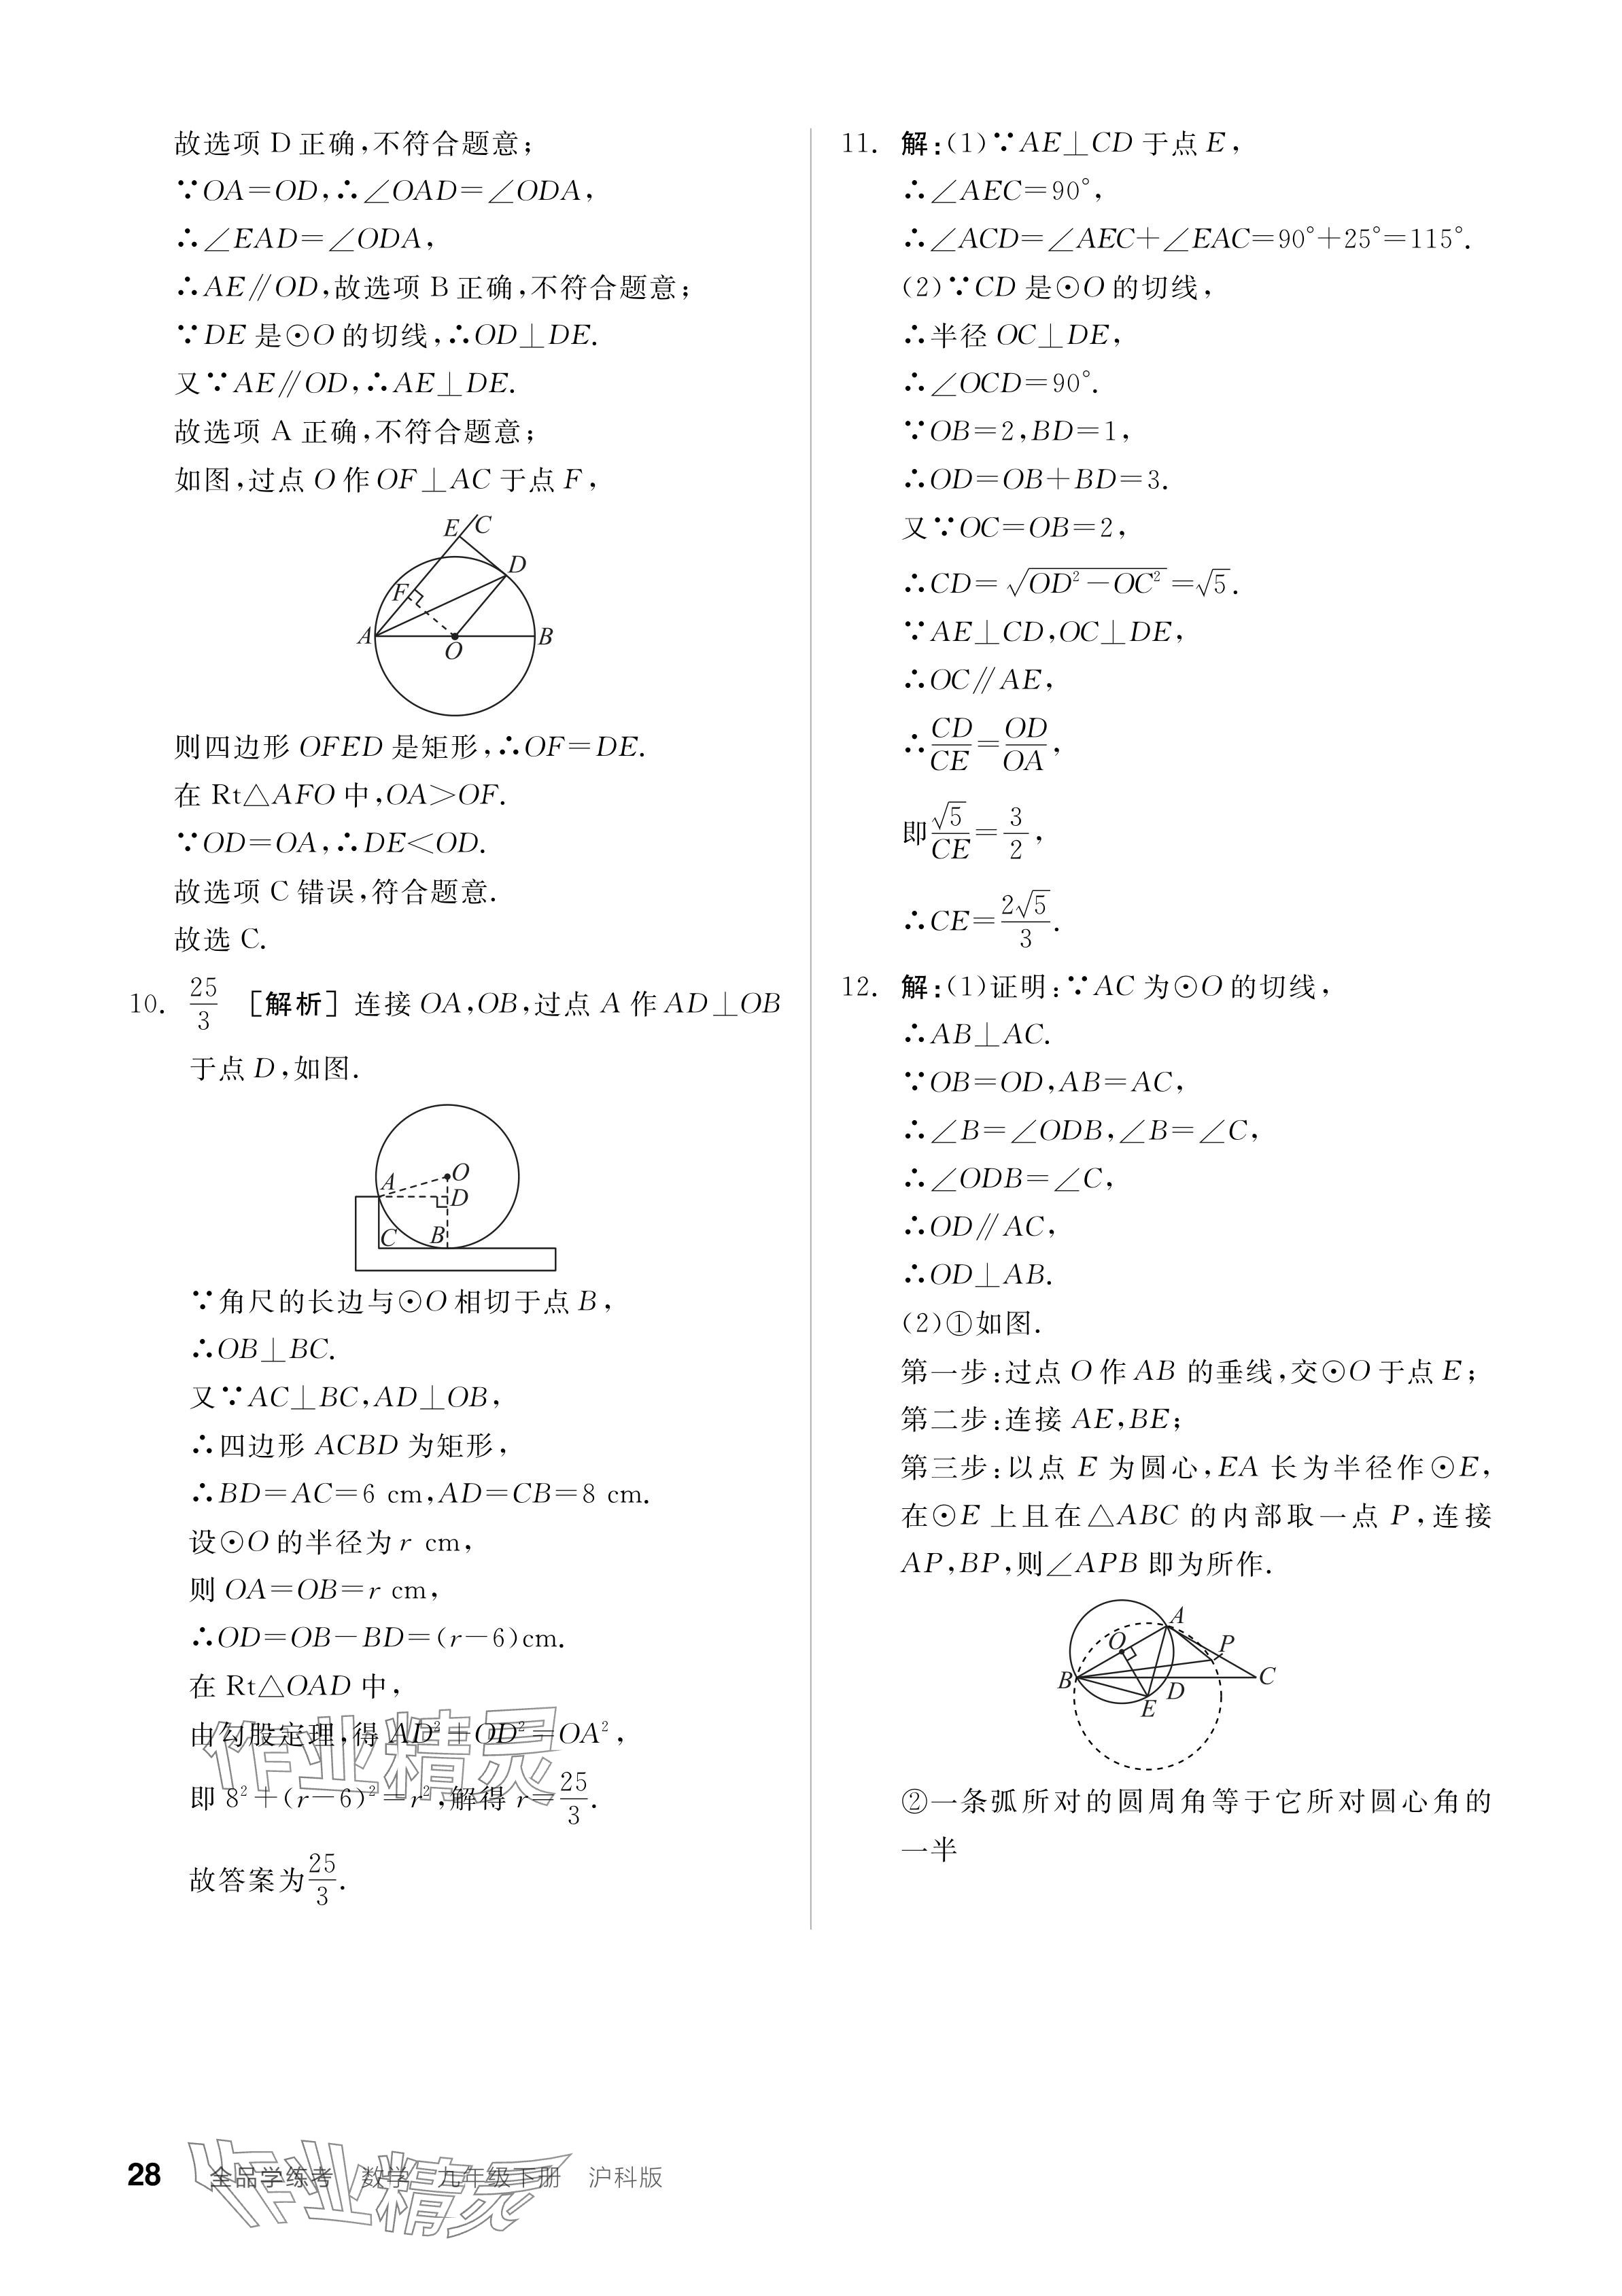 故选项 D 正确,不符合题意;
∵OA=OD,∴∠OAD=∠ODA,
∴∠EAD=∠ODA,
∴AE∥OD,故选项 B 正确,不符合题意;
∵DE 是⊙O 的切线,∴OD⊥DE.
又∵AE∥OD,∴AE⊥DE.
故选项 A 正确,不符合题意;
如图,过点 O 作 OF⊥AC 于点 F,
E C
D
F
A
B
O
则四边形 OFED 是矩形,∴OF=DE.
在 Rt△AFO 中,OA>OF.
∵OD=OA,∴DE<OD.
故选项 C 错误,符合题意.
故选 C.
10. 25/3 [解析] 连接 OA,OB,过点 A 作 AD⊥OB
于点 D,如图.
A O
D
C B
∵角尺的长边与⊙O 相切于点 B,
∴OB⊥BC.
又∵AC⊥BC,AD⊥OB,
∴四边形 ACBD 为矩形,
∴BD=AC=6 cm,AD=CB=8 cm.
设⊙O 的半径为 r cm,
则 OA=OB=r cm,
∴OD=OB-BD=(r-6)cm.
在 Rt△OAD 中,
由勾股定理,得 AD²+OD²=OA²,
即 8²+(r-6)²=r²,解得 r=25/3.
故答案为25/3.
11. 解:(1)∵AE⊥CD 于点 E,
∴∠AEC=90°,
∴∠ACD=∠AEC+∠EAC=90°+25°=115°.
(2)∵CD 是⊙O 的切线,
∴半径 OC⊥DE,
∴∠OCD=90°.
∵OB=2,BD=1,
∴OD=OB+BD=3.
又∵OC=OB=2,
∴CD=√(OD²-OC²)=√5.
∵AE⊥CD,OC⊥DE,
∴OC∥AE,
∴CD/CE=OD/OA,
即√5/CE=3/2,
∴CE=2√5/3.
12. 解:(1)证明:∵AC 为⊙O 的切线,
∴AB⊥AC.
∵OB=OD,AB=AC,
∴∠B=∠ODB,∠B=∠C,
∴∠ODB=∠C,
∴OD∥AC,
∴OD⊥AB.
(2)①如图.
第一步:过点 O 作 AB 的垂线,交⊙O 于点 E;
第二步:连接 AE,BE;
第三步:以点 E 为圆心,EA 长为半径作⊙E,
在⊙E 上且在△ABC 的内部取一点 P,连接
AP,BP,则∠APB 即为所作.
A
O P
B C
E D
②一条弧所对的圆周角等于它所对圆心角的
一半
作业精灵
28 全品学练考 数学 九年级下册 沪科版
作业精灵